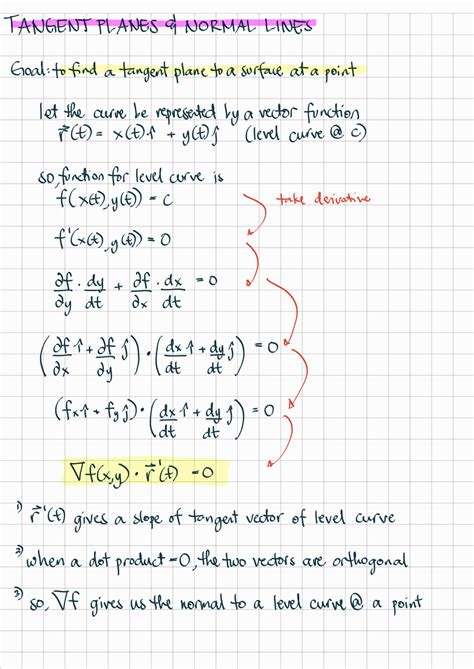 TANGENT PLANES & NORMAL LINES
Goal: to find a tangent plane to a surface at a point
let the curve be represented by a vector function
r⃗(t) = x(t)î + y(t)ĵ (level curve @ c)
so, function for level curve is
f(x(t), y(t)) = c
take derivative
f'(x(t), y(t)) = 0
∂f/∂y · dy/dt + ∂f/∂x · dx/dt = 0
(∂f/∂x î + ∂f/∂y ĵ) · (dx/dt î + dy/dt ĵ) = 0
(fx î + fy ĵ) · (dx/dt î + dy/dt ĵ) = 0
∇f(x,y) · r⃗'(t) = 0
1) r⃗'(t) gives a slope of tangent vector of level curve
2) when a dot product = 0, the two vectors are orthogonal
3) so, ∇f gives us the normal to a level curve @ a point